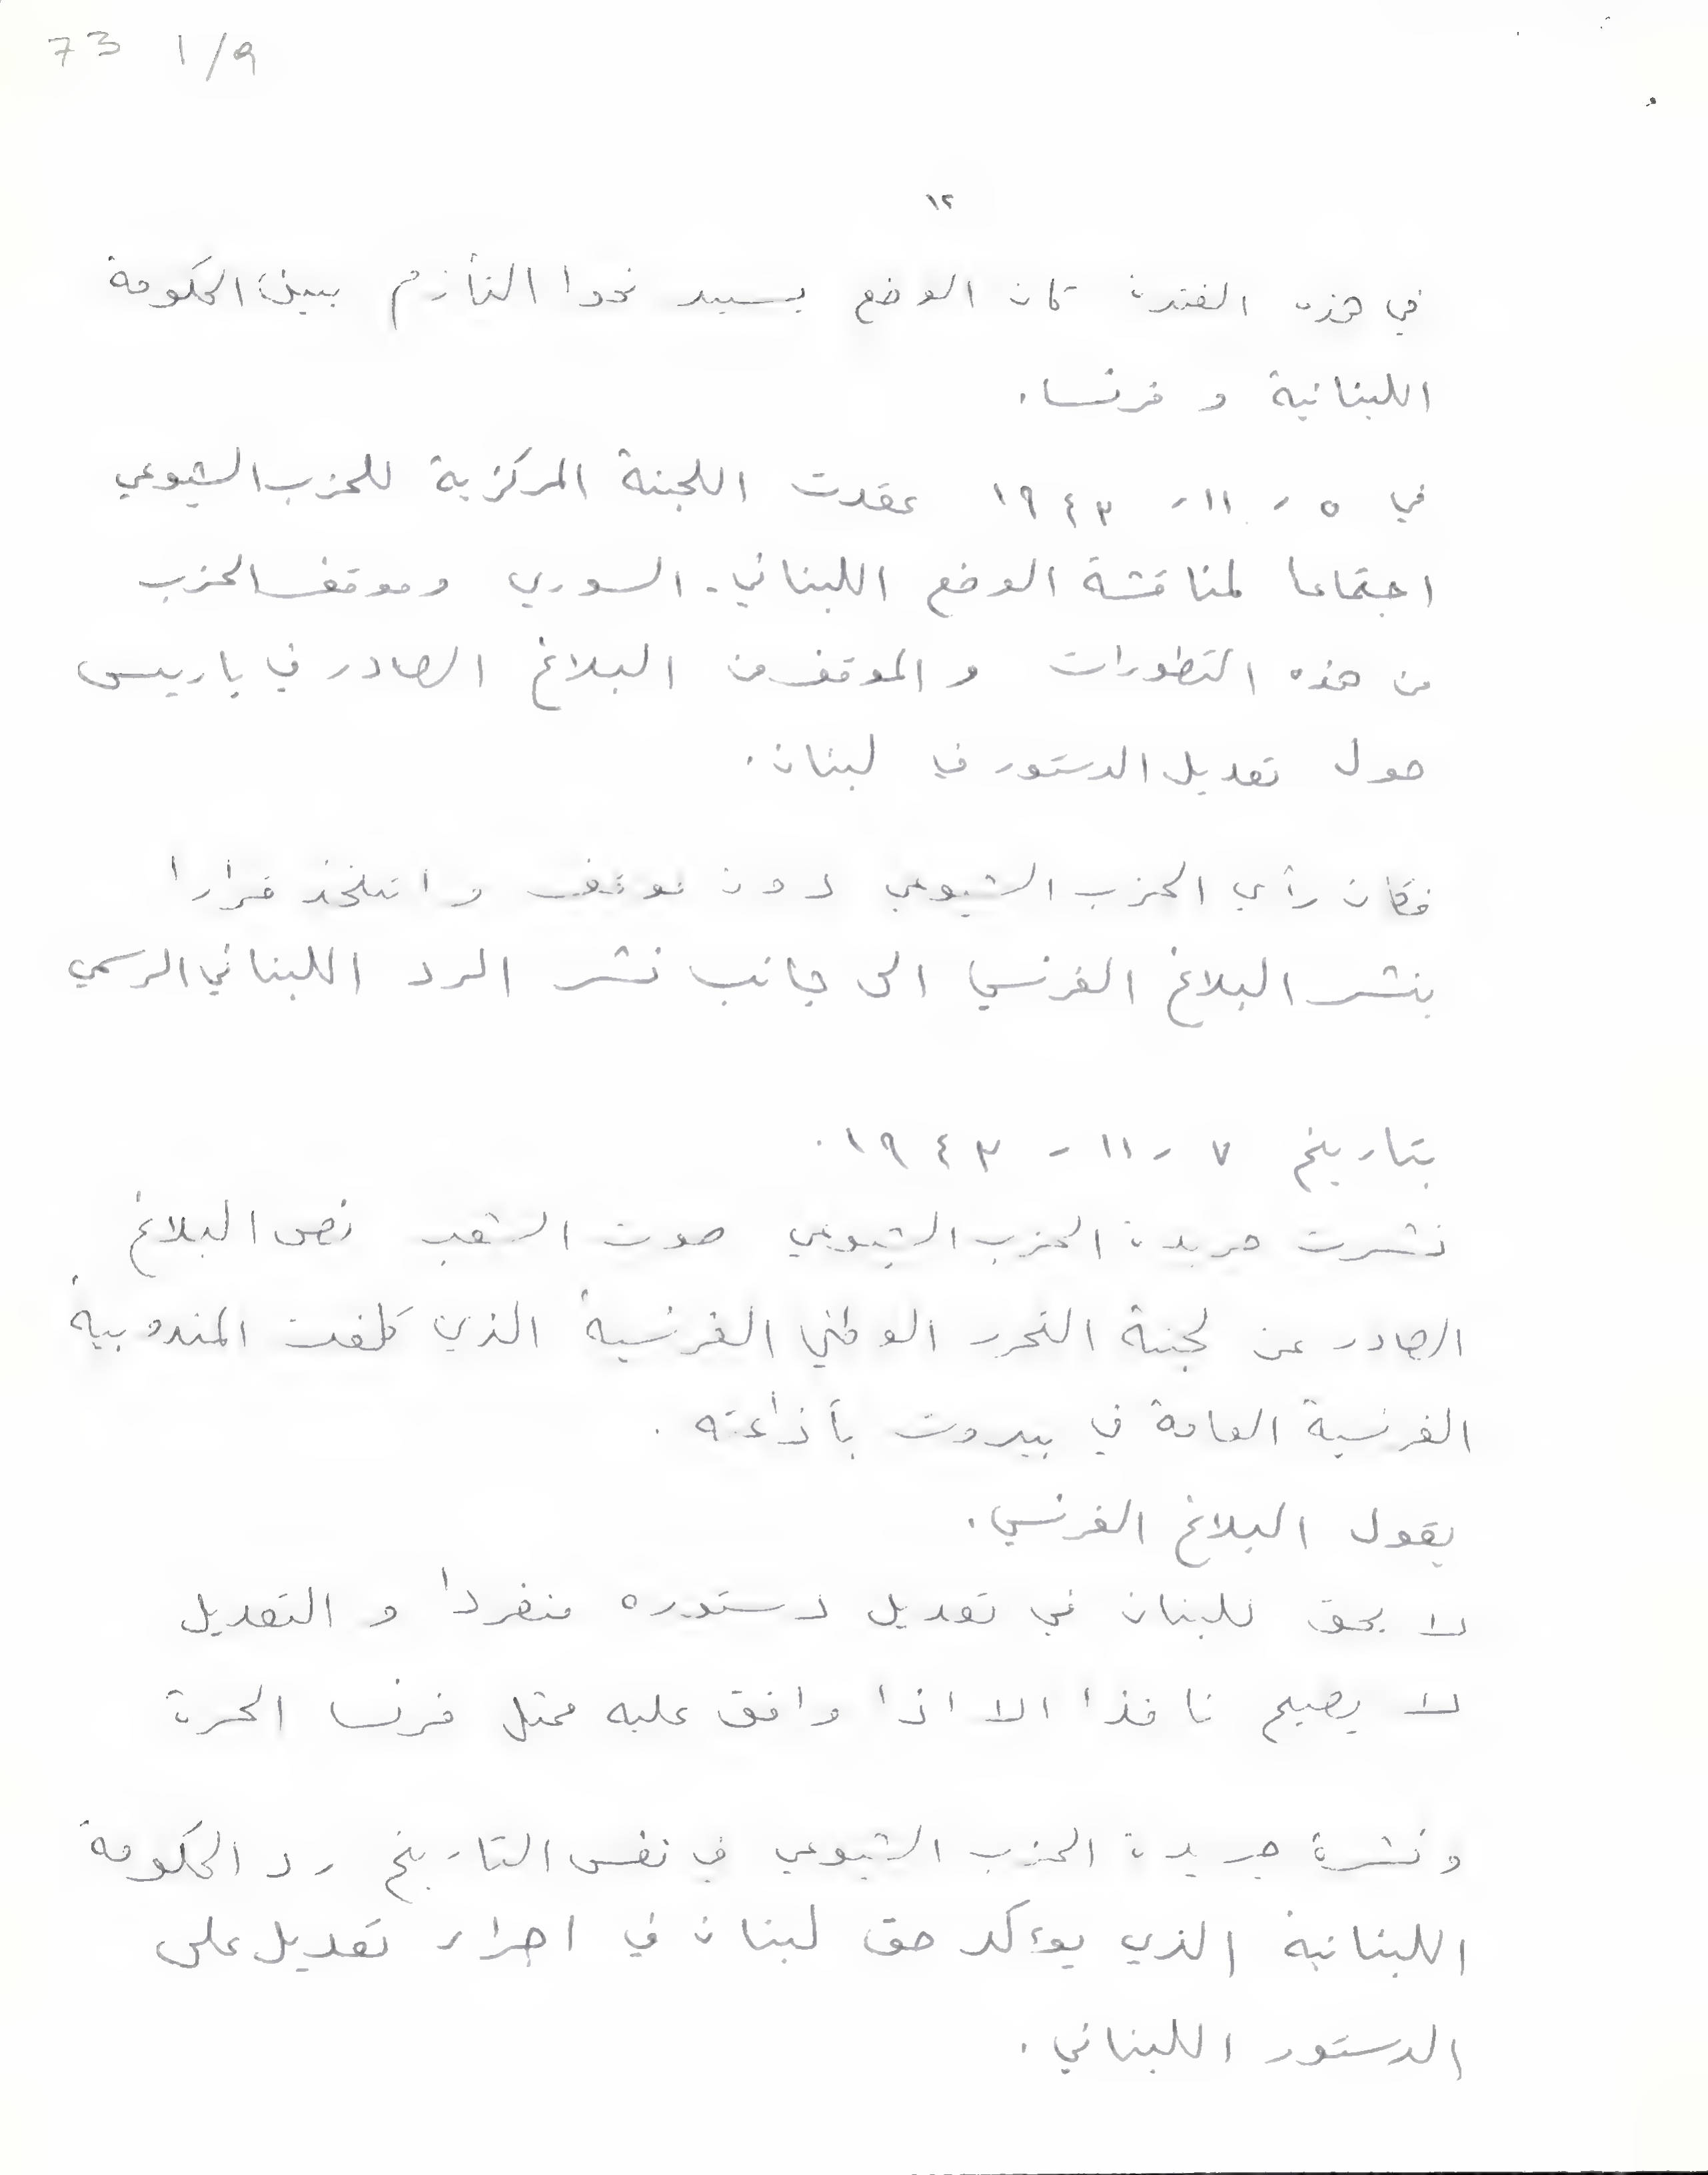 73 1/9
١٢
في هذه الفترة كان الوضع يسير نحوا التأزم بين الحكومة
اللبنانية و فرنسا.
في ٥ - ١١ - ١٩٤٣ عقدت اللجنة المركزية للحزب الشيوعي
اجتماعا لمناقشة الوضع اللبناني - السوري وموقف الحزب
من هذه التطورات والموقف من البلاغ الصادر في باريس
حول تعديل الدستور في لبنان.
فكان رأي الحزب الشيوعي دون توقف قرارا
بنشر البلاغ الفرنسي الى جانب نشر الرد اللبناني الرسمي
بتاريخ ٧ - ١١ - ١٩٤٣.
نشرت جريدة الحزب الشيوعي صوت الشعب نص البلاغ
الصادر عن لجنة التحرر الوطني الفرنسية الذي كلفت المندوبية
الفرنسية العامة في بيروت بأذاعته.
يقول البلاغ الفرنسي.
لا يحق للبنان في تعديل دستوره منفردا و التعديل
لا يصبح نافذا الا اذا وافق عليه ممثل فرنسا الحرة
ونشرة جريدة الحزب الشيوعي في نفس التاريخ رد الحكومة
اللبنانية الذي يوءكد حق لبنان في اجراء تعديل على
الدستور اللبناني.